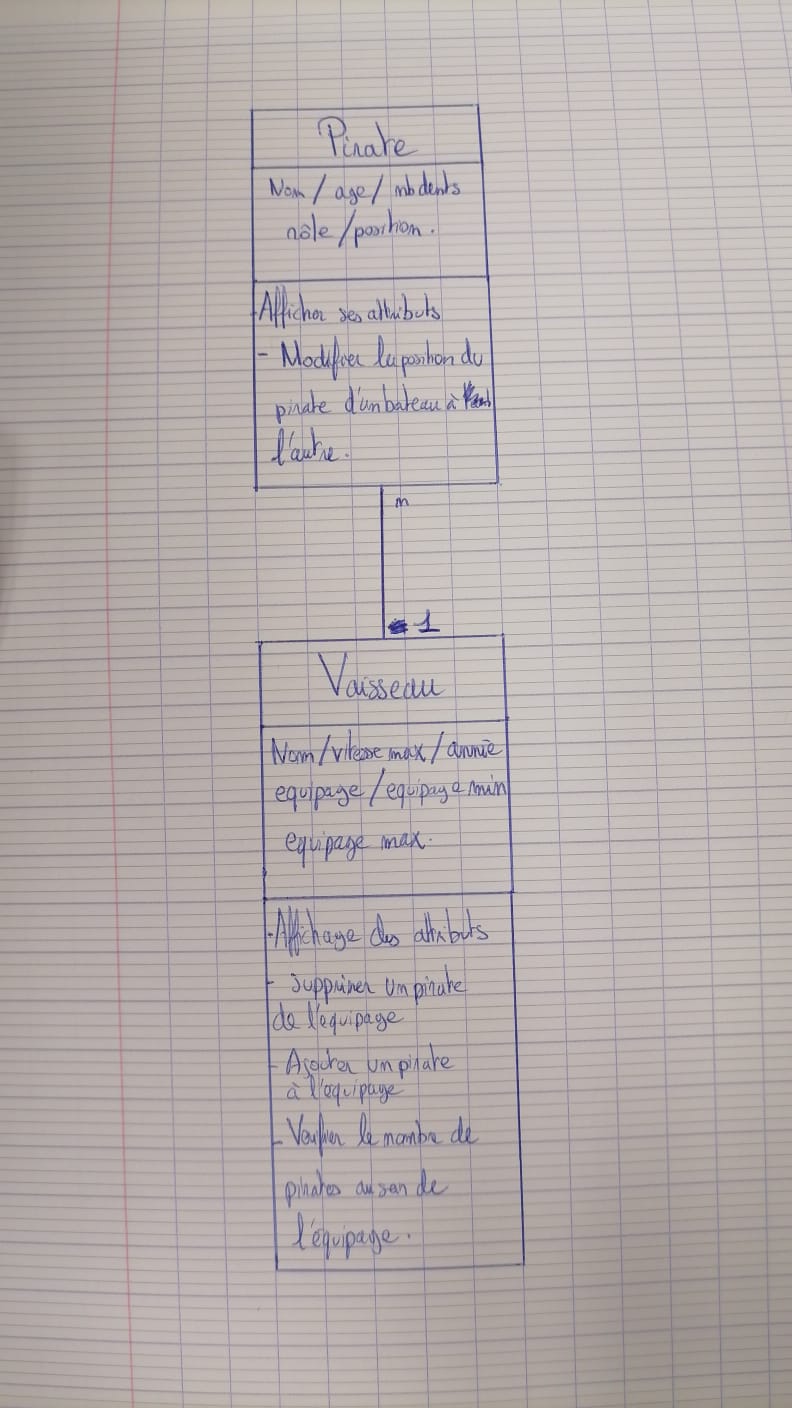 Pirate
Nom / age / nb dents
rôle / position.
- Afficher ses attributs
- Modifier la position du
pirate d'un bateau à
l'autre.
n
1
Vaisseau
Nom / vitesse max / année
equipage / equipage min
equipage max.
- Affichage des attributs
- Supprimer un pirate
de l'equipage
- Ajouter un pirate
à l'equipage
- Verifier le nombre de
pirates au sein de
l'équipage.